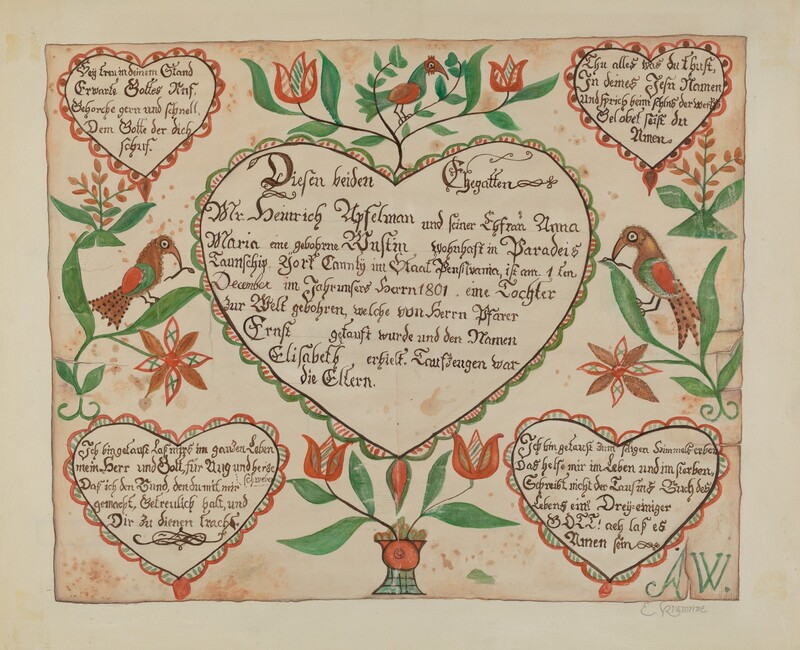 Sey treu in deinem Stand
Erwarte Gottes Ruf,
Gehorche gern und schnell,
Dem Gotte der dich
schuf.
Thu alles was du thust,
In deines Jesu Namen
und sprich beim schlus der
Gelobet seist du
Amen.
Diesen beiden Ehegatten
Mr. Heinrich Apfelman und seiner Ehfrau Anna
Maria eine gebohrne Wustin wohnhaft in Paradeis
Taunschip, York Caunty im Staat Pensilvania, ist am 1 ten
December im Jahr unsers Herrn 1801. eine Tochter
zur Welt gebohren, welche von Herrn Pfarer
Ernst getauft wurde und den Namen
Elisabeth erhielt. Taufzeugen war
die Eltern.
Ich bin getauft Laß mirs im ganzen Leben
mein Herr und Gott, für Aug und herze
schweben
Daß ich den Bund, den du mit mir
gemacht, Getreulich halt, und
Dir zu dienen tracht
Ich bin getauft zum selgen Himmels erben
Das helf mir im Leben und im sterben,
Schreibt nicht der Tauf ins Buch des
Lebens ein! Drey einiger
GOTT! ach laß es
Amen sein
AW.